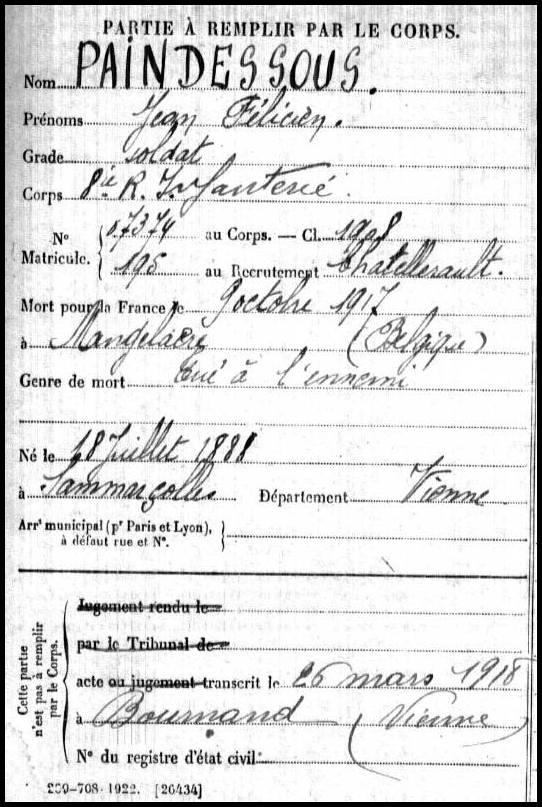 PARTIE À REMPLIR PAR LE CORPS.
Nom PAINDESSOUS.
Prénoms Jean Félicien.
Grade Soldat
Corps 8ie R. Infanterie.
N° Matricule. { 07374 au Corps. — Cl. 1908
195 au Recrutement Chatellerault.
Mort pour la France le 9 octobre 1917
à Mangelaere (Belgique)
Genre de mort Tué à l'ennemi
Né le 18 Juillet 1888
à Sammarçolles Département Vienne
Arrt municipal (pr Paris et Lyon), }
à défaut rue et N°.
Cette partie n'est pas à remplir par le Corps.
Jugement rendu le
par le Tribunal de
acte ou jugement transcrit le 26 mars 1918
à Bournand (Vienne)
N° du registre d'état civil
269-708-1922. [26434]